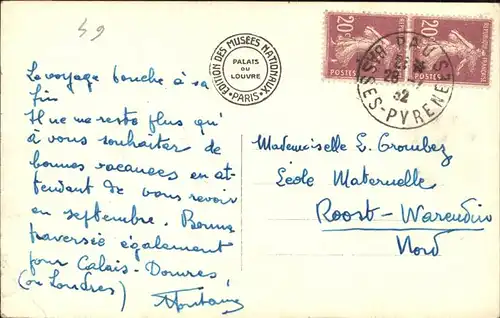 49
EDITION DES MUSÉES NATIONAUX
PALAIS
DU
LOUVRE
PARIS
20c
POSTES
20c
REPUBLIQUE FRANÇAISE
PAU
28
32
BSES-PYRENEES
Le voyage touche à sa
fin
Il ne me reste plus qu'
à vous souhaiter de
bonnes vacances en at-
tendant de vous revoir
en septembre. Bonne
traversée également
pour Calais-Douvres
(ou Londres)
Mademoiselle L. Crombez
École Maternelle
Roost-Warendin
Nord